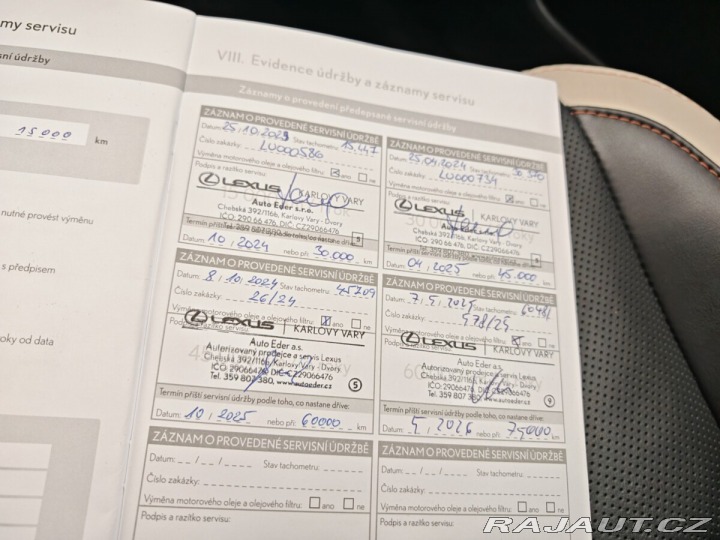 my servisu
sní údržby
15 000 km
nutné provést výměnu
s předpisem
oky od data
VIII. Evidence údržby a záznamy servisu
Záznamy o provedení předepsané servisní údržby
ZÁZNAM O PROVEDENÉ SERVISNÍ ÚDRŽBĚ
Datum: 25.10.2023 Stav tachometru: 15.147
Číslo zakázky: LU000586
Výměna motorového oleje a olejového filtru: ano ne
Podpis a razítko servisu:
LEXUS KARLOVY VARY
Auto Eder s.r.o.
Chebská 392/116b, Karlovy Vary - Dvory
IČO: 290 66 476, DIČ: CZ29066476
Tel. 359 807 380
5
Datum: 10, 2024 nebo při: 30.000 km
ZÁZNAM O PROVEDENÉ SERVISNÍ ÚDRŽBĚ
Datum: 25.04.2024 Stav tachometru:
Číslo zakázky: LU000734
Výměna motorového oleje a olejového filtru: ano ne
Podpis a razítko servisu:
LEXUS KARLOVY VARY
Auto Eder s.r.o.
Chebská 392/116b, Karlovy Vary - Dvory
IČO: 290 66 476, DIČ: CZ29066476
Tel. 359 807 380
Datum: 04, 2025 nebo při: 45.000 km
ZÁZNAM O PROVEDENÉ SERVISNÍ ÚDRŽBĚ
Datum: 8, 10, 2024 Stav tachometru: 45209
Číslo zakázky: 26/24
Výměna motorového oleje a olejového filtru: ano ne
Podpis a razítko servisu:
LEXUS KARLOVY VARY
Auto Eder a.s.
Autorizovaný prodejce a servis Lexus
Chebská 392/116b, Karlovy Vary - Dvory
IČO: 29066476, DIČ: CZ29066476
Tel. 359 807 380, www.autoeder.cz
5
Termín příští servisní údržby podle toho, co nastane dříve:
Datum: 10, 2025 nebo při: 60000 km
ZÁZNAM O PROVEDENÉ SERVISNÍ ÚDRŽBĚ
Datum: 7, 5, 2025 Stav tachometru:
Číslo zakázky: 578/25
Výměna motorového oleje a olejového filtru: ano ne
Podpis a razítko servisu:
LEXUS KARLOVY VARY
Auto Eder a.s.
Autorizovaný prodejce a servis Lexus
Chebská 392/116b, Karlovy Vary - Dvory
IČO: 29066476, DIČ: CZ29066476
Tel. 359 807 380, www.autoeder.cz
Termín příští servisní údržby podle toho, co nastane dříve:
Datum: 5, 2026 nebo při: 75000 km
ZÁZNAM O PROVEDENÉ SERVISNÍ ÚDRŽBĚ
Datum: _ _ / _ _ / _ _ Stav tachometru:
Číslo zakázky:
Výměna motorového oleje a olejového filtru: ano ne
Podpis a razítko servisu:
ZÁZNAM O PROVEDENÉ SERVISNÍ ÚDRŽBĚ
Datum: _ _ / _ _ / _ _ Stav tachometru:
Číslo zakázky:
Výměna motorového oleje a olejového filtru:
Podpis a razítko servisu:
RAJAUT.CZ